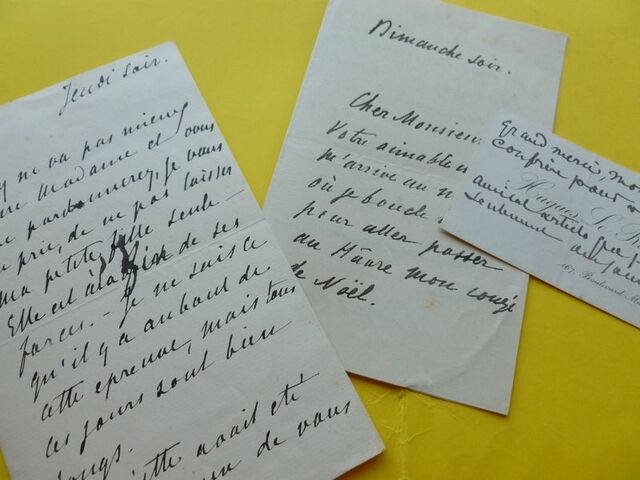 Jeudi soir.
ne va pas mieux
Madame et vous
pardonnerez, je vous
prie, de ne pas laisser
ma petite seule –
Elle est à la fin de ses
forces. – Je ne sais ce
qu'il y a au bout de
cette épreuve, mais tous
ces jours sont bien
longs.
avait été
de vous
Dimanche soir.
Cher Monsieur
Votre aimable
m'arrive au
où je boucle
pour aller passer
au Hâvre mon congé
de Noël.
Grand merci, mo
confrère pour
amical article
Hugues L
Boulevard